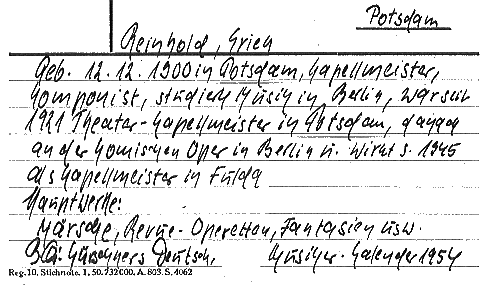 Potsdam
Reinhold, Erich
Geb. 12.12.1900 in Potsdam, Kapellmeister,
Komponist, studiert Musik in Berlin, war seit
1921 Theater-Kapellmeister in Potsdam, danach
an der Komischen Oper in Berlin u. wirkt s. 1945
als Kapellmeister in Fulda
Hauptwerke:
Märsche, Revue-Operetten, Fantasien usw.
Kürschners Deutsch. Musiker-Kalender 1954
Reg. 10. Stichnote. 1, 50. 732000. A. 803. S. 4062